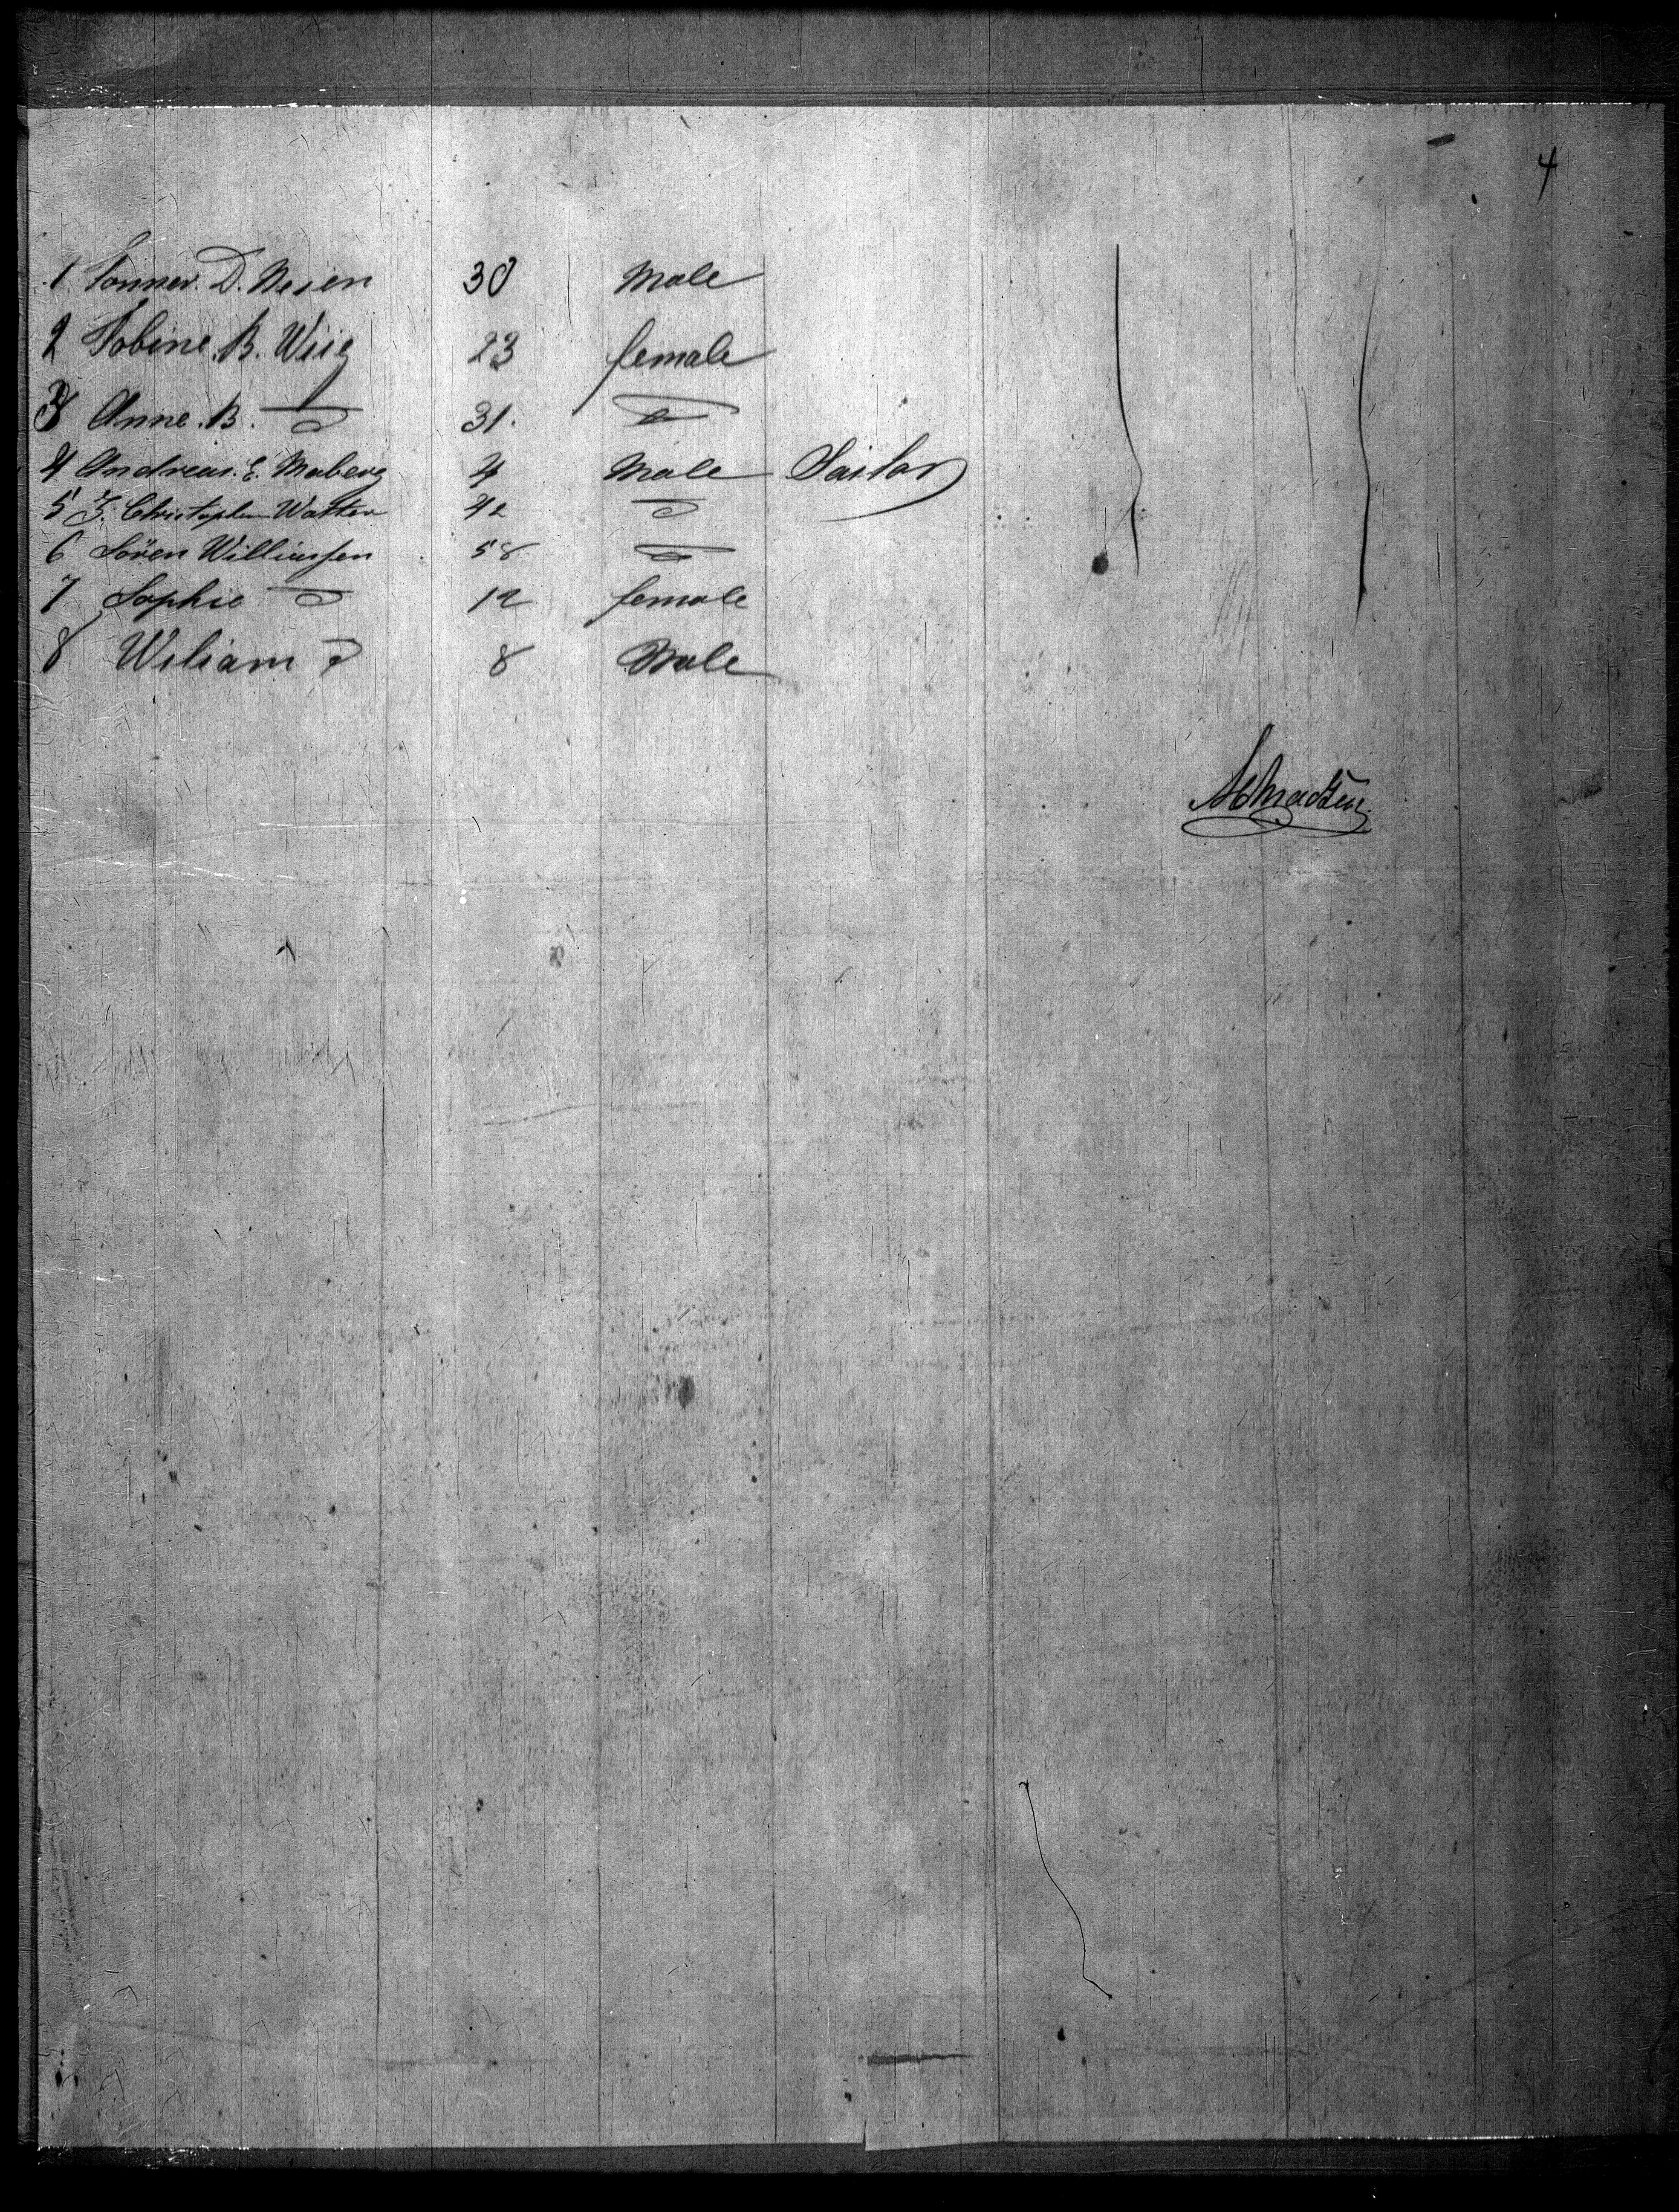 4
1 D. 30 Male
2 Tobine. B. Wiig 23 female
3 Anne. B. 31.
4 Andreas. E. Moberg 4 Male Sailor
5 Christopher 42
6 Sören Williamsen 58
7 Sophie 12 female
8 Wiliam 8 Male
Madsen